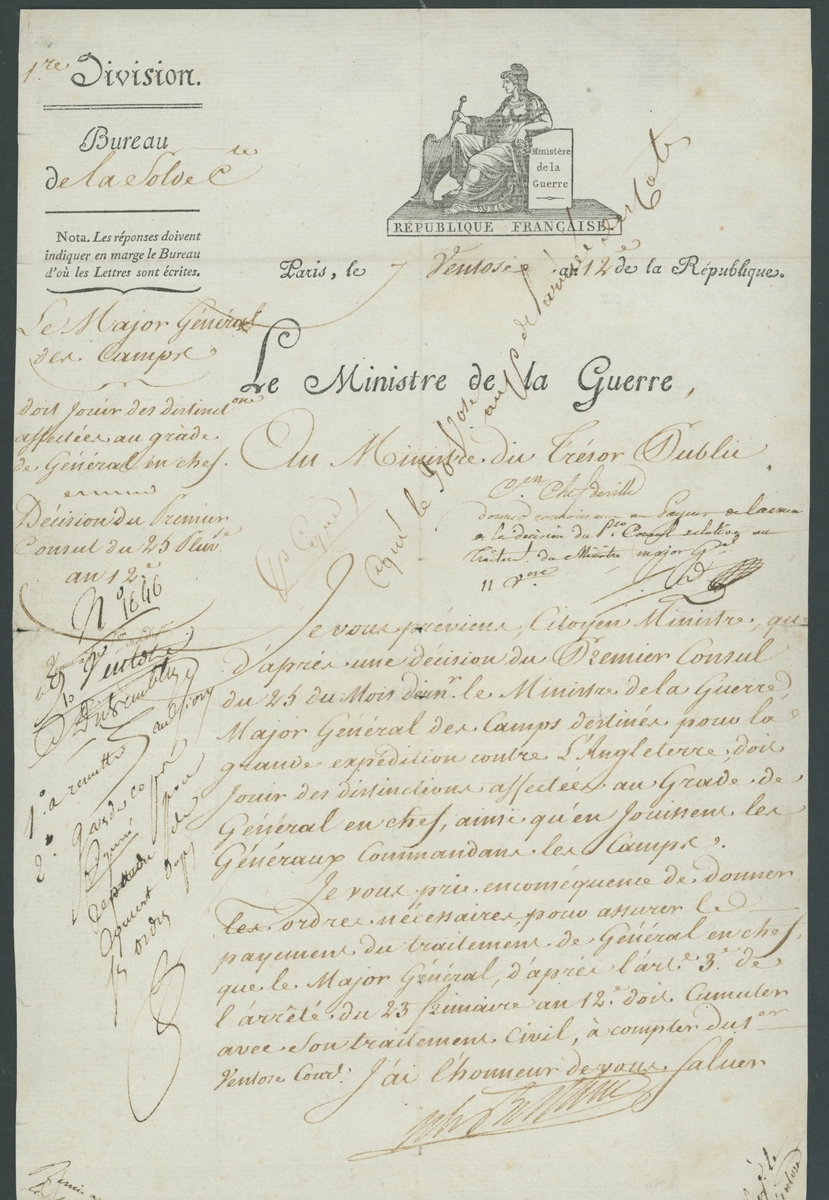 1.re Division.
Bureau
de la Solde &.te
Nota. Les réponses doivent
indiquer en marge le Bureau
d'où les Lettres sont écrites.
Ministère
de la
Guerre
RÉPUBLIQUE FRANÇAISE.
Paris, le 7 Ventose an 12.e de la République.
Le Major Général
des Camps
doit jouir des distinct.ons
affectées au grade
de Général en chef.
Décision du Premier
Consul du 25 Pluv.e
an 12.e
N.o 1646
Ventose
1.o a remettre
2.o
ordres
Le Ministre de la Guerre,
Au Ministre du Trésor Public
C.en Chefdeville
a la décision du P.er Consul relative au
Traitem.t du Ministre major G.al
11 V.ose
Je vous préviens, Citoyen Ministre, que
d'après une décision du Premier Consul
du 25 du Mois d.er le Ministre de la Guerre,
Major Général des Camps destinés pour la
grande expédition contre L'Angleterre, doit
jouir des distinctions affectées au Grade de
Général en chef, ainsi qu'en jouissent les
Généraux Commandans les Camps.
Je vous prie en conséquence de donner
les ordres nécessaires, pour assurer le
payement du traitement de Général en chef,
que le Major Général, d'après l'art.e 3.e de
l'arrêté du 23 frimaire an 12.e doit Cumuler
avec son traitement Civil, à compter du 1.er
Ventose Cour.t J'ai l'honneur de vous saluer